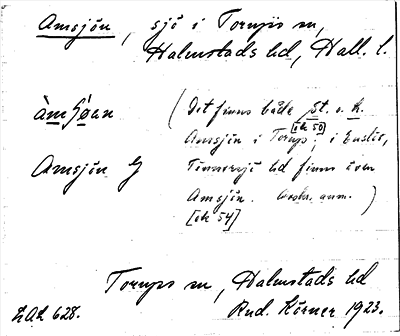 Amsjön, sjö i Torups sn,
Halmstads hd, Hall. l.
àmʃö́an (Det finns både St. o. L.
Amsjön i Torup [ek 50]; i Enslöv,
Amsjön G Tönnersjö hd finns även
Amsjön. anm.)
[ek 54]
Torups sn, Halmstads hd
LAL 628. Rud. Körner 1923.